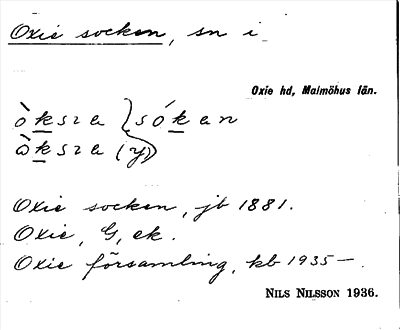 Oxie socken, sn i
Oxie hd, Malmöhus län.
òksıa } sókan
ὼksıa (y)
Oxie socken, jb 1881.
Oxie, G, ek.
Oxie församling, kb 1935—.
NILS NILSSON 1936.